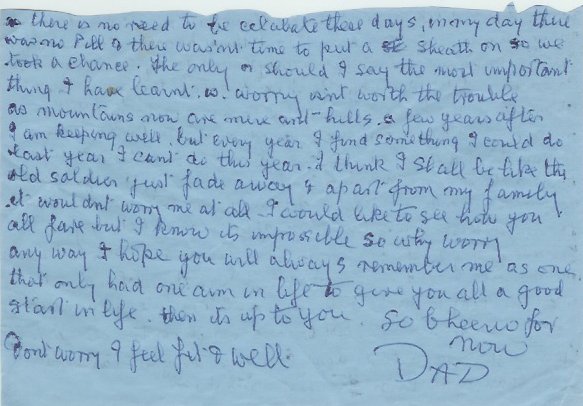 there is no need to be celubate these days, in my day there
was no Pill & there wasnt time to put a sheath on so we
took a chance. The only or should I say the most important
thing I have learnt is. worry isnt worth the trouble
as mountains now are mere ant-hills. a few years after
I am keeping well. but every year I find something I could do
last year I cant do this year. I think I shall be like the
old soldier just fade away & apart from my family
it wouldnt worry me at all. I would like to see how you
all fare but I know its impossible so why worry
any way I hope you will always remember me as one
that only had one aim in life to give you all a good
start in life. then its up to you. So Cheerio for
now
Dont worry I feel fit & well.
DAD